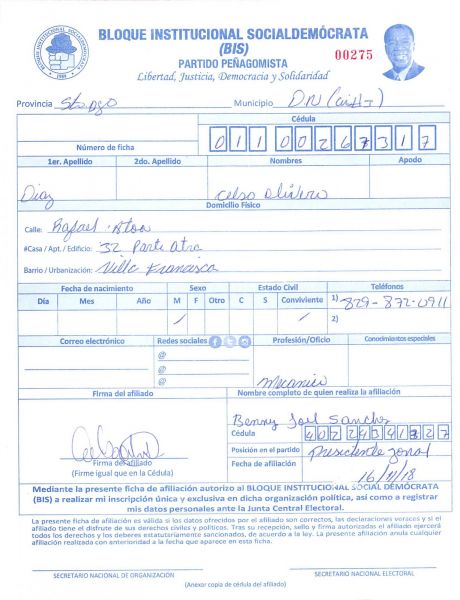 BLOQUE INSTITUCIONAL SOCIALDEMÓCRATA
(BIS)
PARTIDO PEÑAGOMISTA
00275
Libertad, Justicia, Democracia y Solidaridad
Provincia Sto. Dgo Municipio D.N
Cédula
Número de ficha 011 0026731 7
1er. Apellido 2do. Apellido Nombres Apodo
Diaz Celso
Domicilio Físico
Calle: Rafael Atoa
#Casa / Apt. / Edificio: 32 Parte Atra
Barrio / Urbanización: Villa Francisca
Fecha de nacimiento Sexo Estado Civil Teléfonos
Día Mes Año M F Otro C S Conviviente 1) 829-872-0911
/ / 2)
Correo electrónico Redes sociales Profesión/Oficio Conocimientos especiales
@
@
@
Mecanico
Firma del afiliado Nombre completo de quien realiza la afiliación
Benny Joel Sanchez
Cédula 402 24341827
Posición en el partido Presidente zonal
Firma del afiliado
(Firme igual que en la Cédula)
Fecha de afiliación 16/11/18
Mediante la presente ficha de afiliación autorizo al BLOQUE INSTITUCIONAL SOCIAL DEMÓCRATA
(BIS) a realizar mi inscripción única y exclusiva en dicha organización política, así como a registrar
mis datos personales ante la Junta Central Electoral.
La presente ficha de afiliación es válida si los datos ofrecidos por el afiliado son correctos, las declaraciones veraces y si el
afiliado tiene el disfrute de sus derechos civiles y políticos. Tras su recepción, sello y firma autorizadas el afiliado ejercerá
todos los derechos y los deberes estatutariamente sancionados, de acuerdo a la ley. La presente afiliación anula cualquier
afiliación realizada con anterioridad a la fecha que aparece en esta ficha.
SECRETARIO NACIONAL DE ORGANIZACIÓN SECRETARIO NACIONAL ELECTORAL
(Anexar copia de cédula del afiliado)